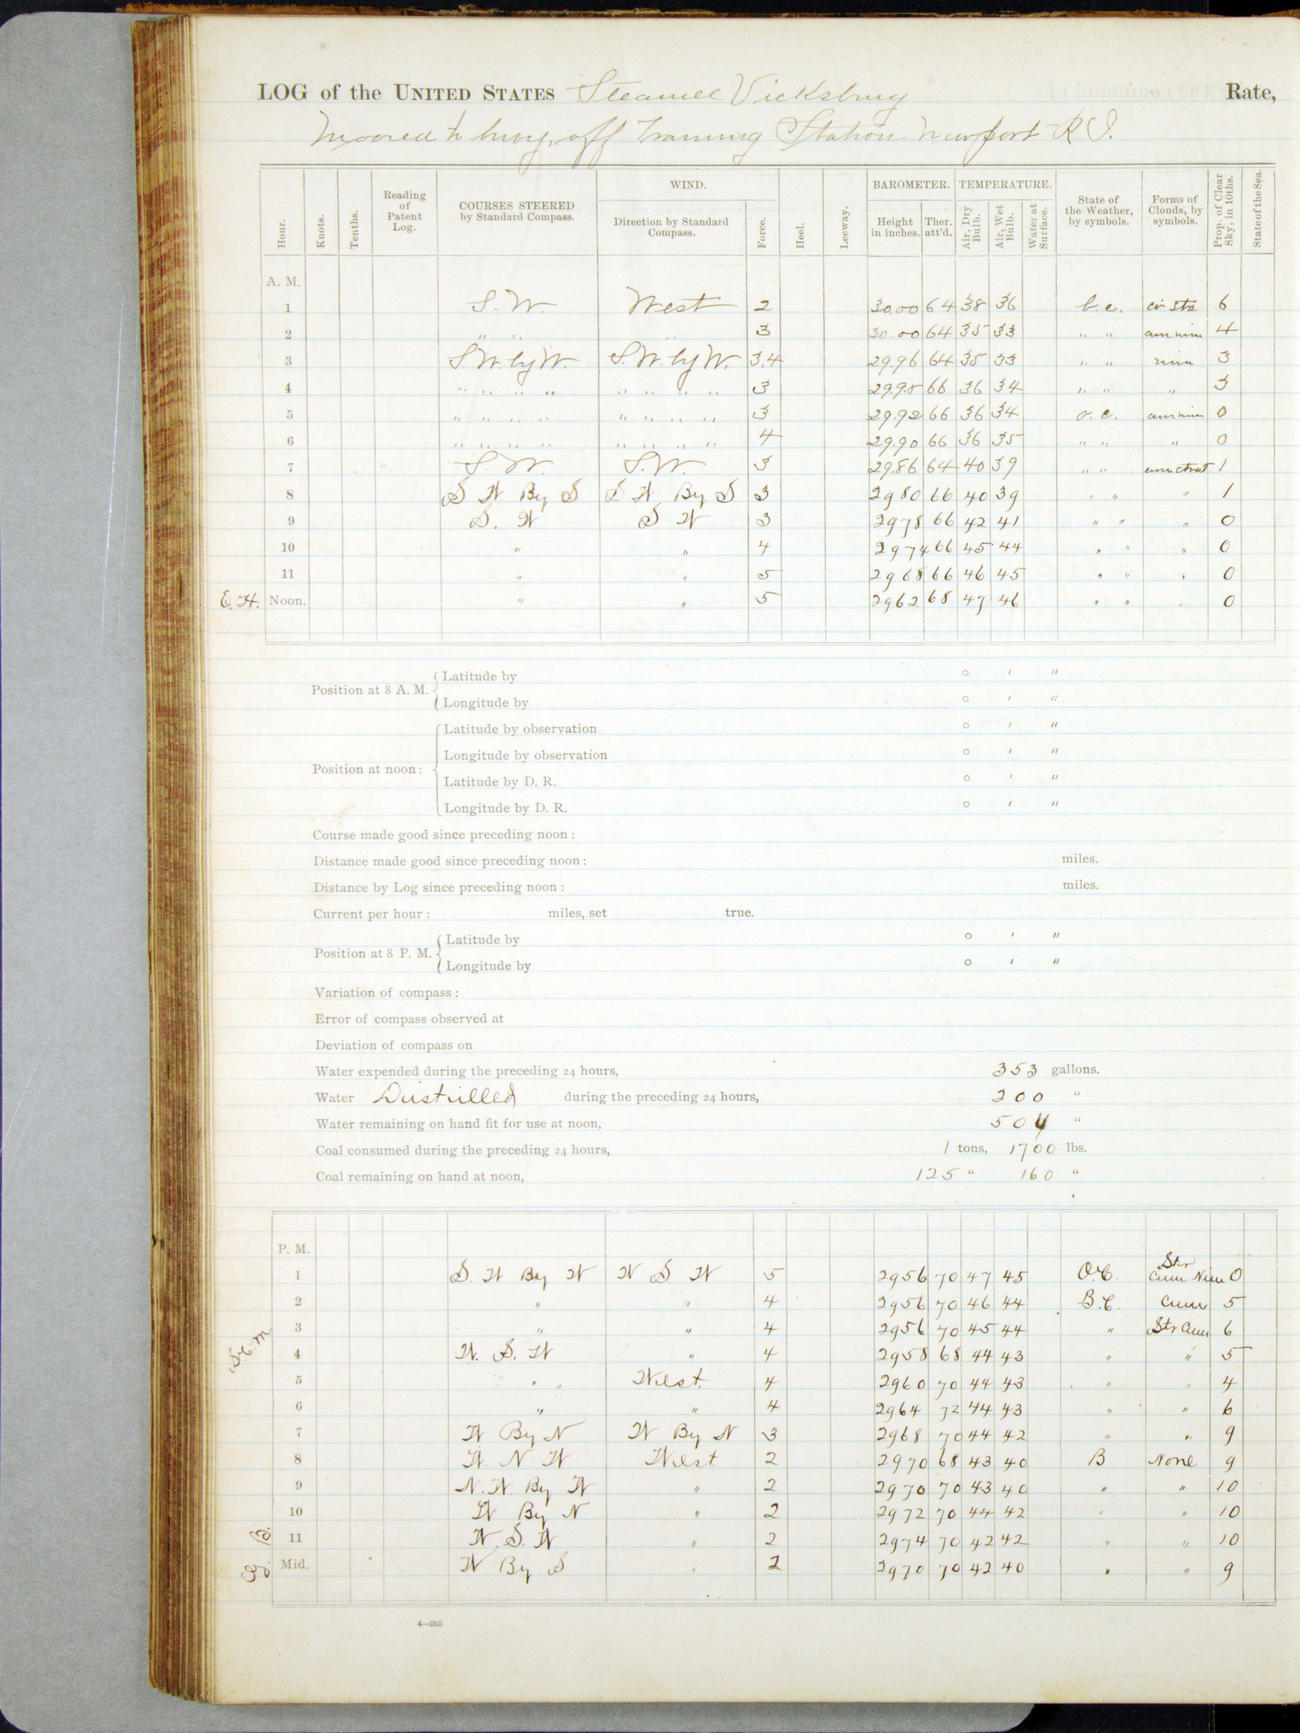 LOG of the UNITED STATES Steamer Vicksburg Rate,
Moored to buoy, off Training Station Newport R.I.
Hour. Knots. Tenths. Reading of Patent Log. COURSES STEERED by Standard Compass. WIND. Direction by Standard Compass. Force. Heel. Leeway. BAROMETER. Height in inches. Ther. att'd. TEMPERATURE. Air, Dry Bulb. Air, Wet Bulb. Water at Surface. State of the Weather, by symbols. Forms of Clouds, by symbols. Prop. of Clear Sky, in 10ths. State of the Sea.
A. M.
1 S.W. West 2 30.00 64 38 36 b.c. cir stra 6
2 " " " 3 30.00 64 35 33 " " cum nim 4
3 S.W. by W. S.W. by W. 3.4 29.96 64 35 33 " " nim 3
4 " " " " " " " " 3 29.98 66 36 34 " " " 3
5 " " " " " " " " 3 29.92 66 36 34 o.c. cum nim 0
6 " " " " " " " " 4 29.90 66 36 35 " " " 0
7 S.W. S.W. 3 29.86 64 40 39 " " cum strat 1
8 S W By S S W By S 3 2980 66 40 39 " " " 1
9 S. W S W 3 2978 66 42 41 " " " 0
10 " " 4 2974 66 45 44 " " " 0
11 " " 5 2968 66 46 45 " " " 0
E.H. Noon. " " 5 2962 68 47 46 " " " 0
Position at 8 A. M. Latitude by ° ' "
Longitude by ° ' "
Position at noon: Latitude by observation ° ' "
Longitude by observation ° ' "
Latitude by D. R. ° ' "
Longitude by D. R. ° ' "
Course made good since preceding noon:
Distance made good since preceding noon: miles.
Distance by Log since preceding noon: miles.
Current per hour: miles, set true.
Position at 8 P. M. Latitude by ° ' "
Longitude by ° ' "
Variation of compass:
Error of compass observed at
Deviation of compass on
Water expended during the preceding 24 hours, 353 gallons.
Water Distilled during the preceding 24 hours, 200 "
Water remaining on hand fit for use at noon, 504 "
Coal consumed during the preceding 24 hours, 1 tons, 1700 lbs.
Coal remaining on hand at noon, 125 " 160 "
P. M.
1 S. W By W W S W 5 2956 70 47 45 O.C. Str Cum Nim 0
2 " " 4 2956 70 46 44 B.C. Cum 5
3 " " 4 2956 70 45 44 " Str Cum 6
4 W. S. W " 4 2958 68 44 43 " " 5
5 " " West 4 2960 70 44 43 " " 4
6 " " 4 2964 72 44 43 " " 6
7 W By N W By N 3 2968 70 44 42 " " 9
8 W. N W West 2 2970 68 43 40 B None 9
9 N. W By W " 2 2970 70 43 40 " " 10
10 W By N " 2 2972 70 44 42 " " 10
11 W. S. W " 2 2974 70 42 42 " " 10
Mid. W By S " 2 2970 70 42 40 " " 9
4—265